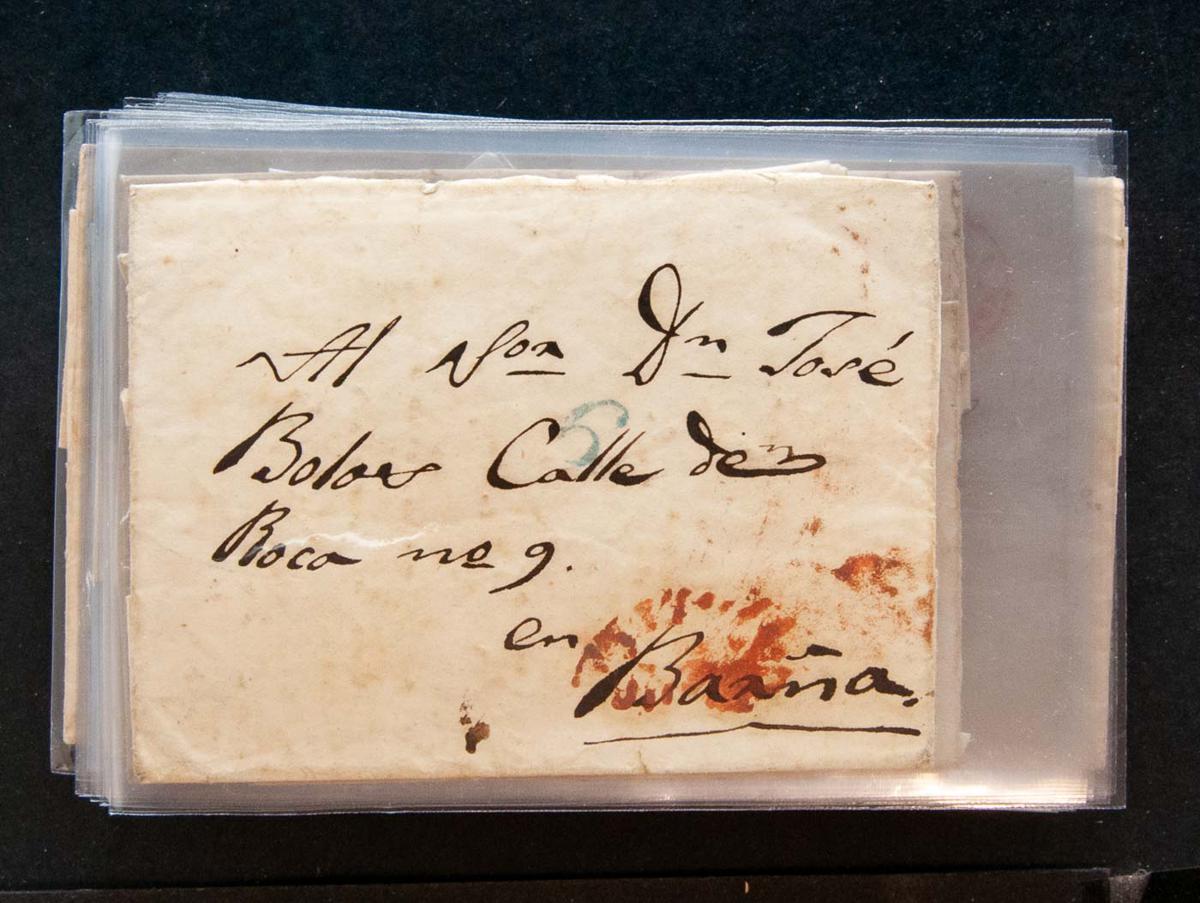 Al Sor Dn José
Bolos Calle den
Roca no 9.
en
Barña.
6